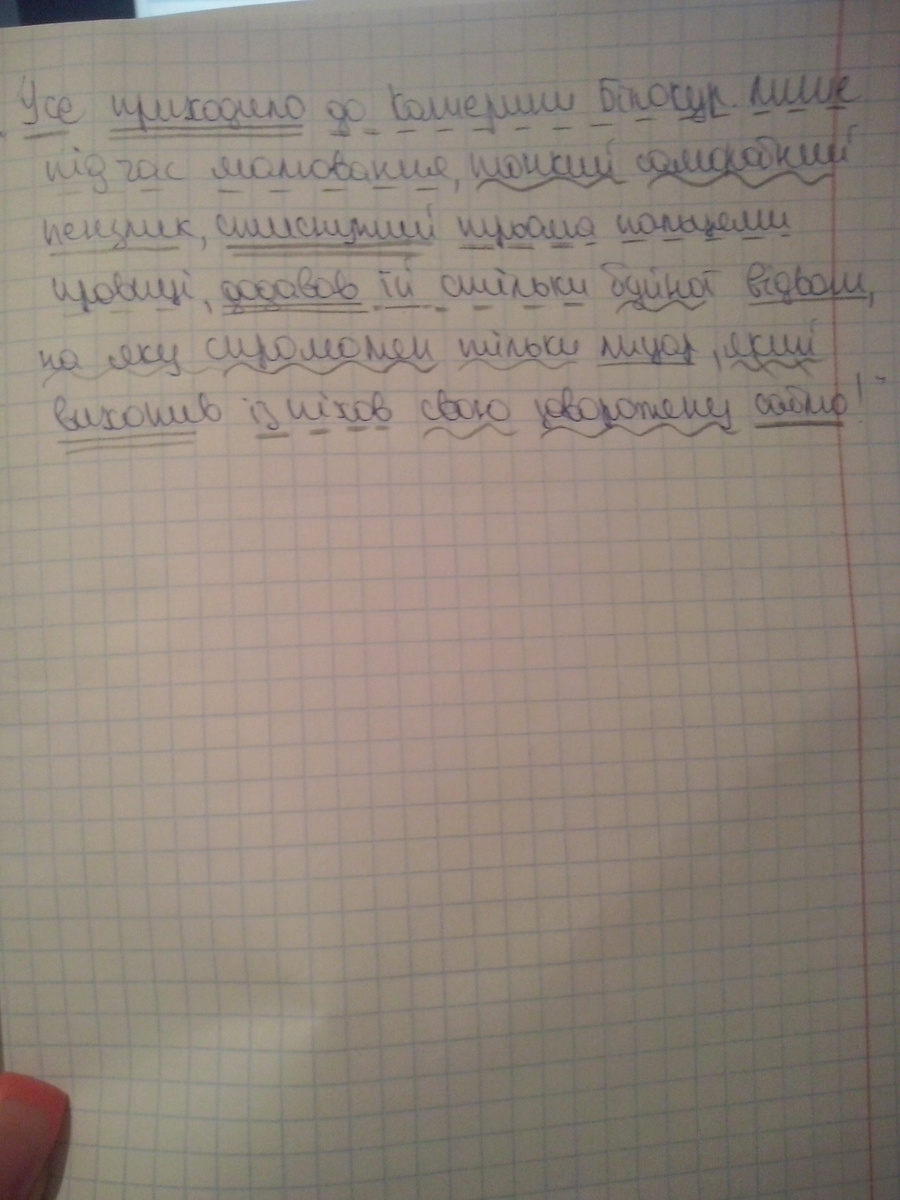 Усе приходило до Катерини Білокур лише
під час малювання, тонкий саморобний
пензлик, стиснутий трьома пальцями
правиці, додавав їй стільки буйної відваги,
на яку спроможен тільки лицар, який
вихопив із піхов свою заворожену шаблю!